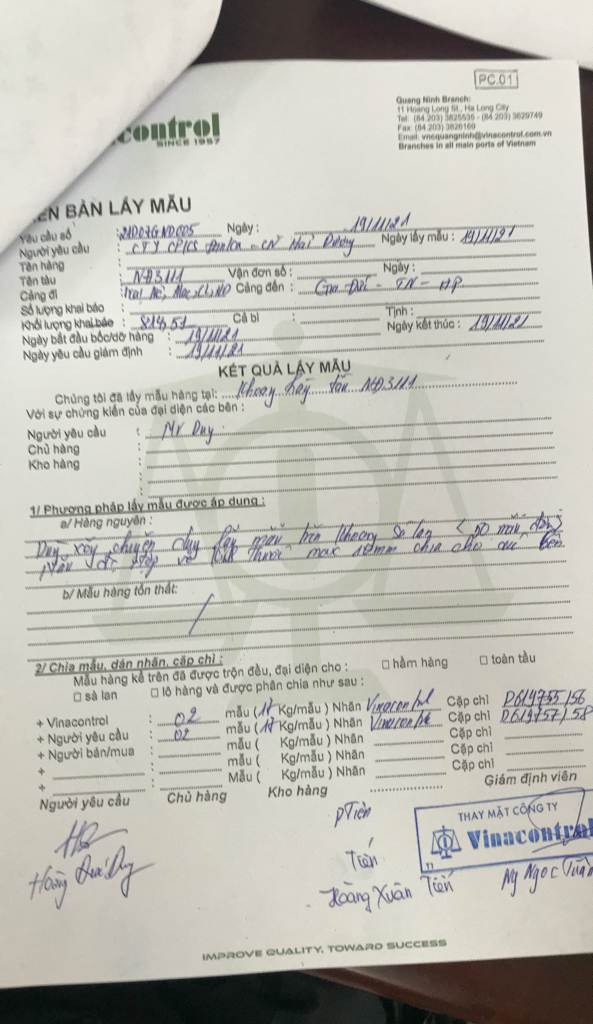 PC.01
control
SINCE 1957
Quang Ninh Branch:
11 Hoang Long St., Ha Long City
Tel: (84.203) 3825535 - (84.203) 3629749
Fax: (84.203) 3826169
Email: vncquangninh@vinacontrol.com.vn
Branches in all main ports of Vietnam
ÊN BẢN LẤY MẪU
Yêu cầu số : 21D07GND005 Ngày : 19/11/21
Người yêu cầu : CTY CPICS - CN Hải Dương Ngày lấy mẫu : 19/11/21
Tên hàng :
Tên tàu : NĐ3111 Vận đơn số : Ngày :
Cảng đi : Cảng đến : - TN - HP
Số lượng khai báo :
Khối lượng khai báo : 814,51 Cả bì : Tịnh :
Ngày bắt đầu bốc/dỡ hàng : 19/11/21 Ngày kết thúc : 19/11/21
Ngày yêu cầu giám định : 19/11/21
KẾT QUẢ LẤY MẪU
Chúng tôi đã lấy mẫu hàng tại: Khoang hầm tàu NĐ3111
Với sự chứng kiến của đại diện các bên :
Người yêu cầu : Mr Duy
Chủ hàng :
Kho hàng :
1/ Phương pháp lấy mẫu được áp dụng :
a/ Hàng nguyên :
Dùng xẻng chuyên dụng lấy mẫu trên khoang sà lan mẫu
max 10mm chia cho các bên
b/ Mẫu hàng tổn thất:
/
2/ Chia mẫu, dán nhãn, cặp chì :
Mẫu hàng kể trên đã được trộn đều, đại diện cho : □ hầm hàng □ toàn tàu
□ sà lan □ lô hàng và được phân chia như sau :
+ Vinacontrol : 02 mẫu (17 Kg/mẫu ) Nhãn Vinacontrol Cặp chì D619755/56
+ Người yêu cầu : 02 mẫu (17 Kg/mẫu ) Nhãn Vinacontrol Cặp chì D619757/58
+ Người bán/mua : mẫu ( Kg/mẫu ) Nhãn Cặp chì
+ : mẫu ( Kg/mẫu ) Nhãn Cặp chì
+ : Mẫu ( Kg/mẫu ) Nhãn Cặp chì
Người yêu cầu Chủ hàng Kho hàng Giám định viên
PTiên
THAY MẶT CÔNG TY
Vinacontrol
Tiến
Hoàng Đức Duy
Hoàng Xuân Tiến
Ng Ngọc Tuấn
IMPROVE QUALITY, TOWARD SUCCESS